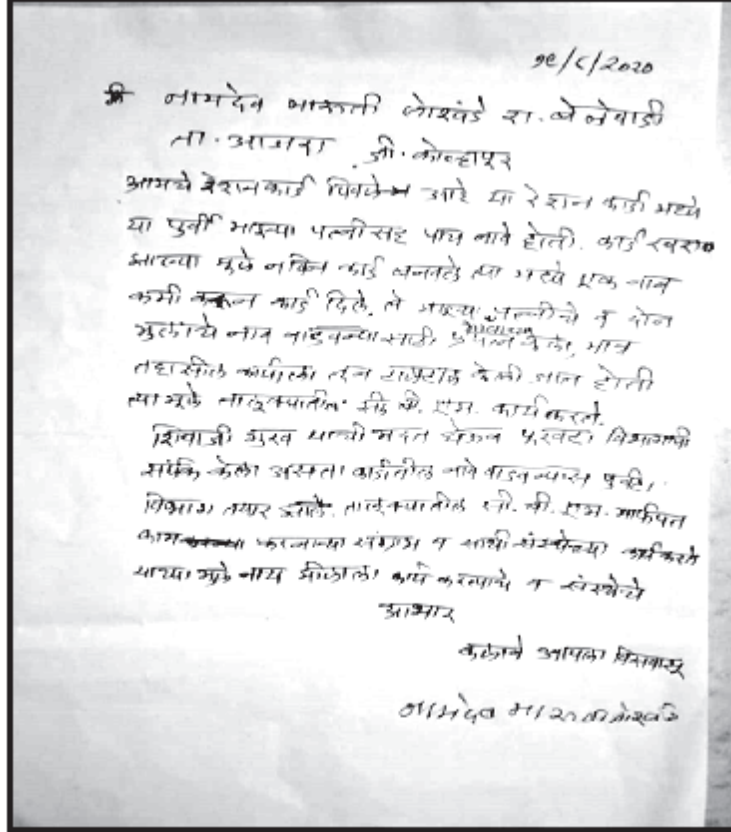 १९/८/२०२०
मी नामदेव मारुती लोखंडे रा. बेलेवाडी
ता. आजरा जी. कोल्हापूर
आमचे रेशनकार्ड पिवळे आहे या रेशन कार्ड मध्ये
या पुर्वी माझ्या पत्नीसह पाच नावे होती. कार्ड खराब
झाल्या मुळे नविन कार्ड बनवले त्या मध्ये एक नाव
कमी करून कार्ड दिले. ते माझ्या पत्नीचे व दोन
मुलांचे नाव वाडवन्यासाठी प्रयत्न केला, मात्र
तहासील कार्याला तून टाळाटाळ केली जात होती
त्या मूळे तालूक्यातील सी. बी. एम. कार्यकरते.
शिवाजी गुरव यांची मदत घेऊन पुरवटा विभागाशी
संर्पक केला असता कार्डातील नावे वाडवन्यास पुरवटा
विभाग तयार झाले. तालूक्यातील सी. बी. एम. मार्फत
काम करनाऱ्या संग्राम व साथी संस्थेच्या कार्यकरते
यांच्या मुळे नाय मीळाला कार्य करत्याचे व संस्थेचे
आभार
कळावे आपला विसवासू
नामदेव मारुती लोखंडे